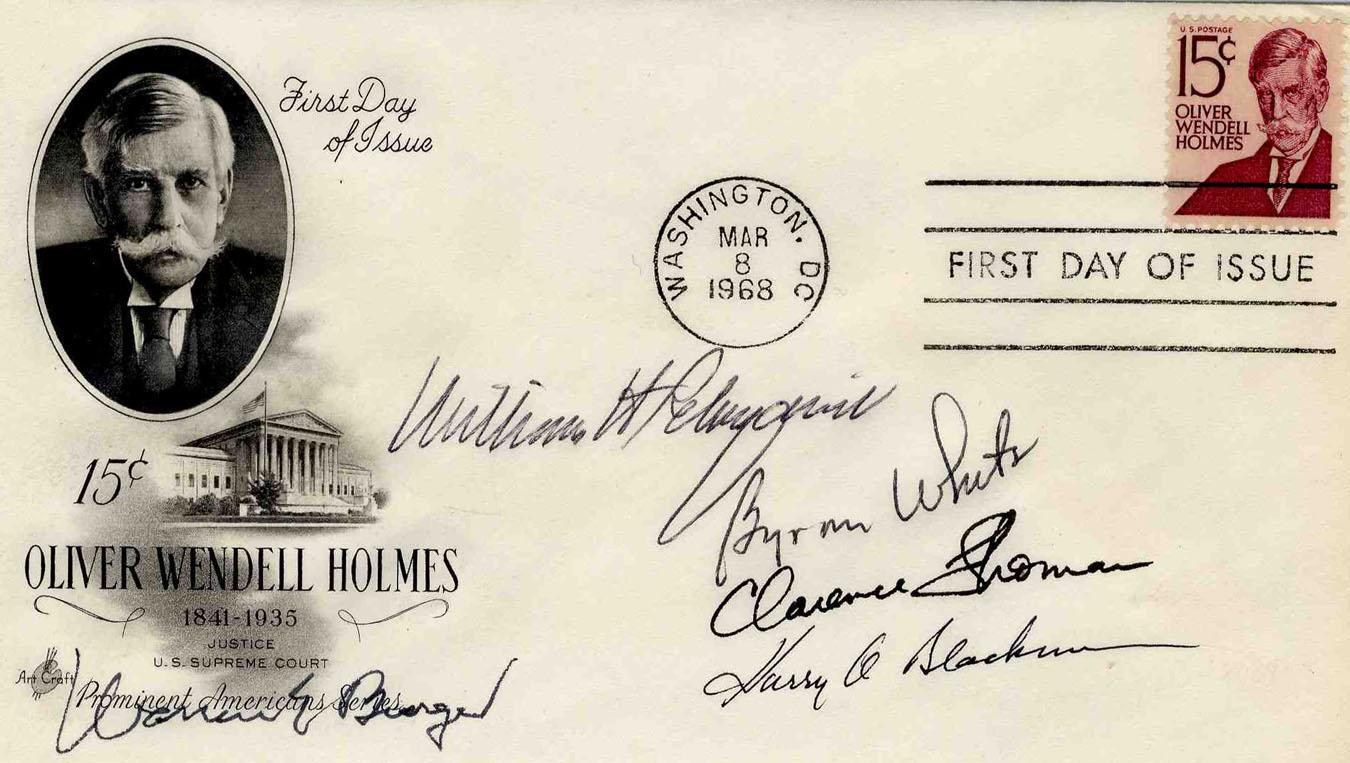 First Day
of Issue
U.S. POSTAGE
15¢
OLIVER
WENDELL
HOLMES
WASHINGTON, DC
MAR
8
1968
FIRST DAY OF ISSUE
William H Rehnquist
Byron White
Clarence Thomas
Harry A Blackmun
15¢
OLIVER WENDELL HOLMES
1841-1935
JUSTICE
U.S. SUPREME COURT
Art Craft
Prominent Americans Series
Warren E Burger